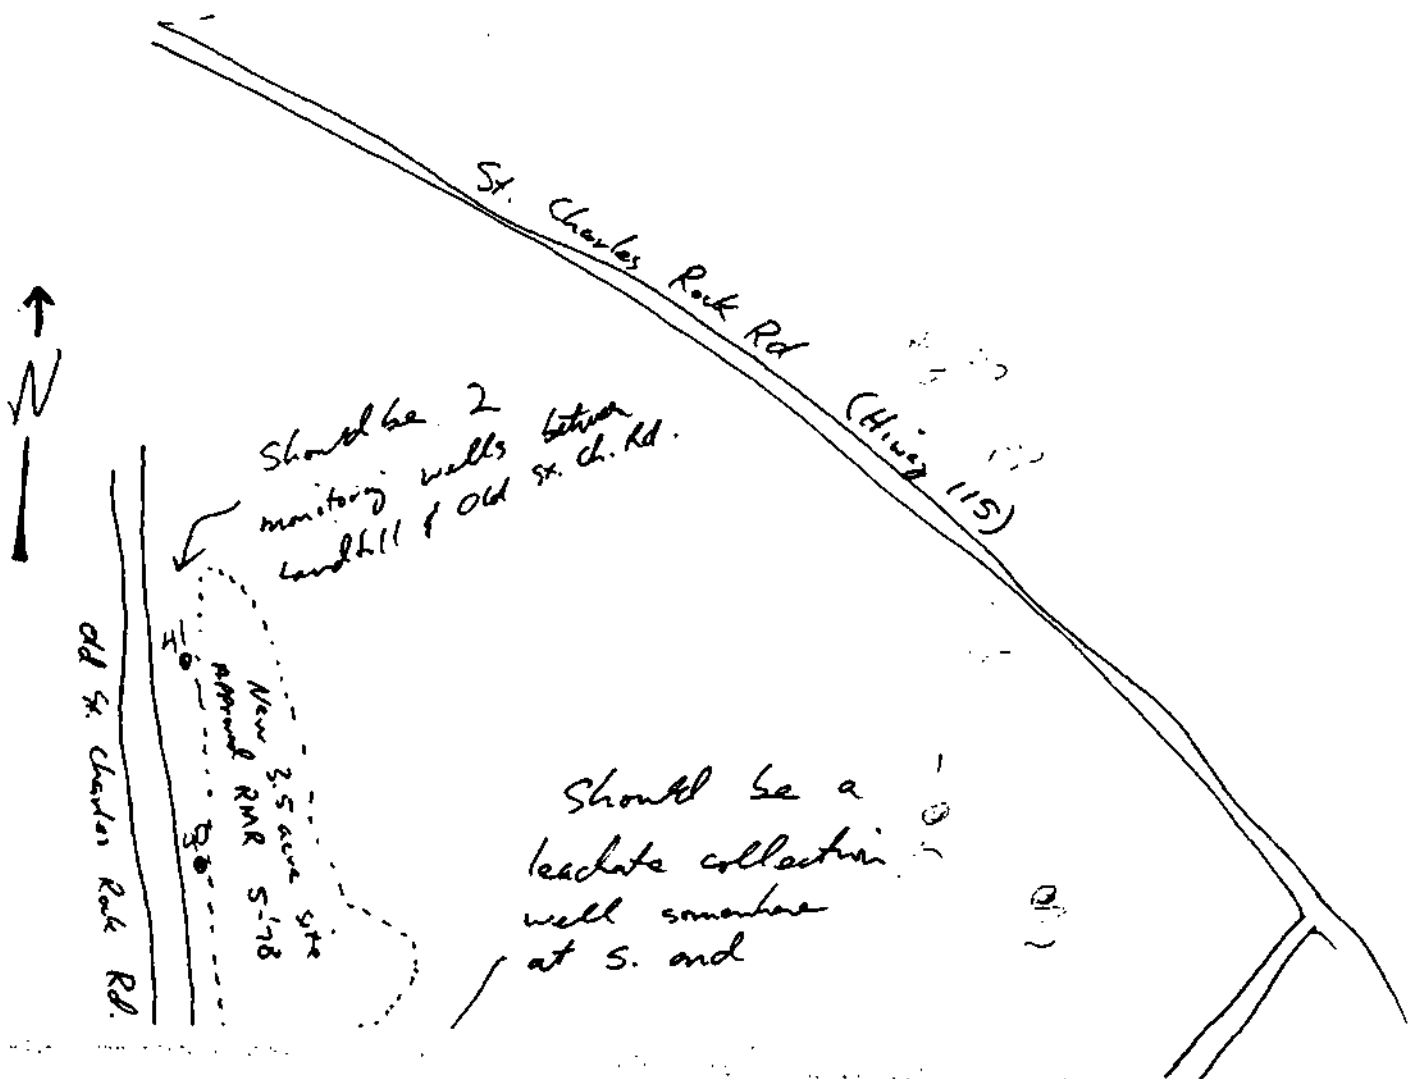 St. Charles Rock Rd (Hiway 115)
N
Should be 2
monitoring wells between
Landfill & Old St. Ch. Rd.
Old St. Charles Rock Rd.
New 3.5 acre site
Approved RMR 5-'78
Should be a
leachate collection
well somewhere
at S. end